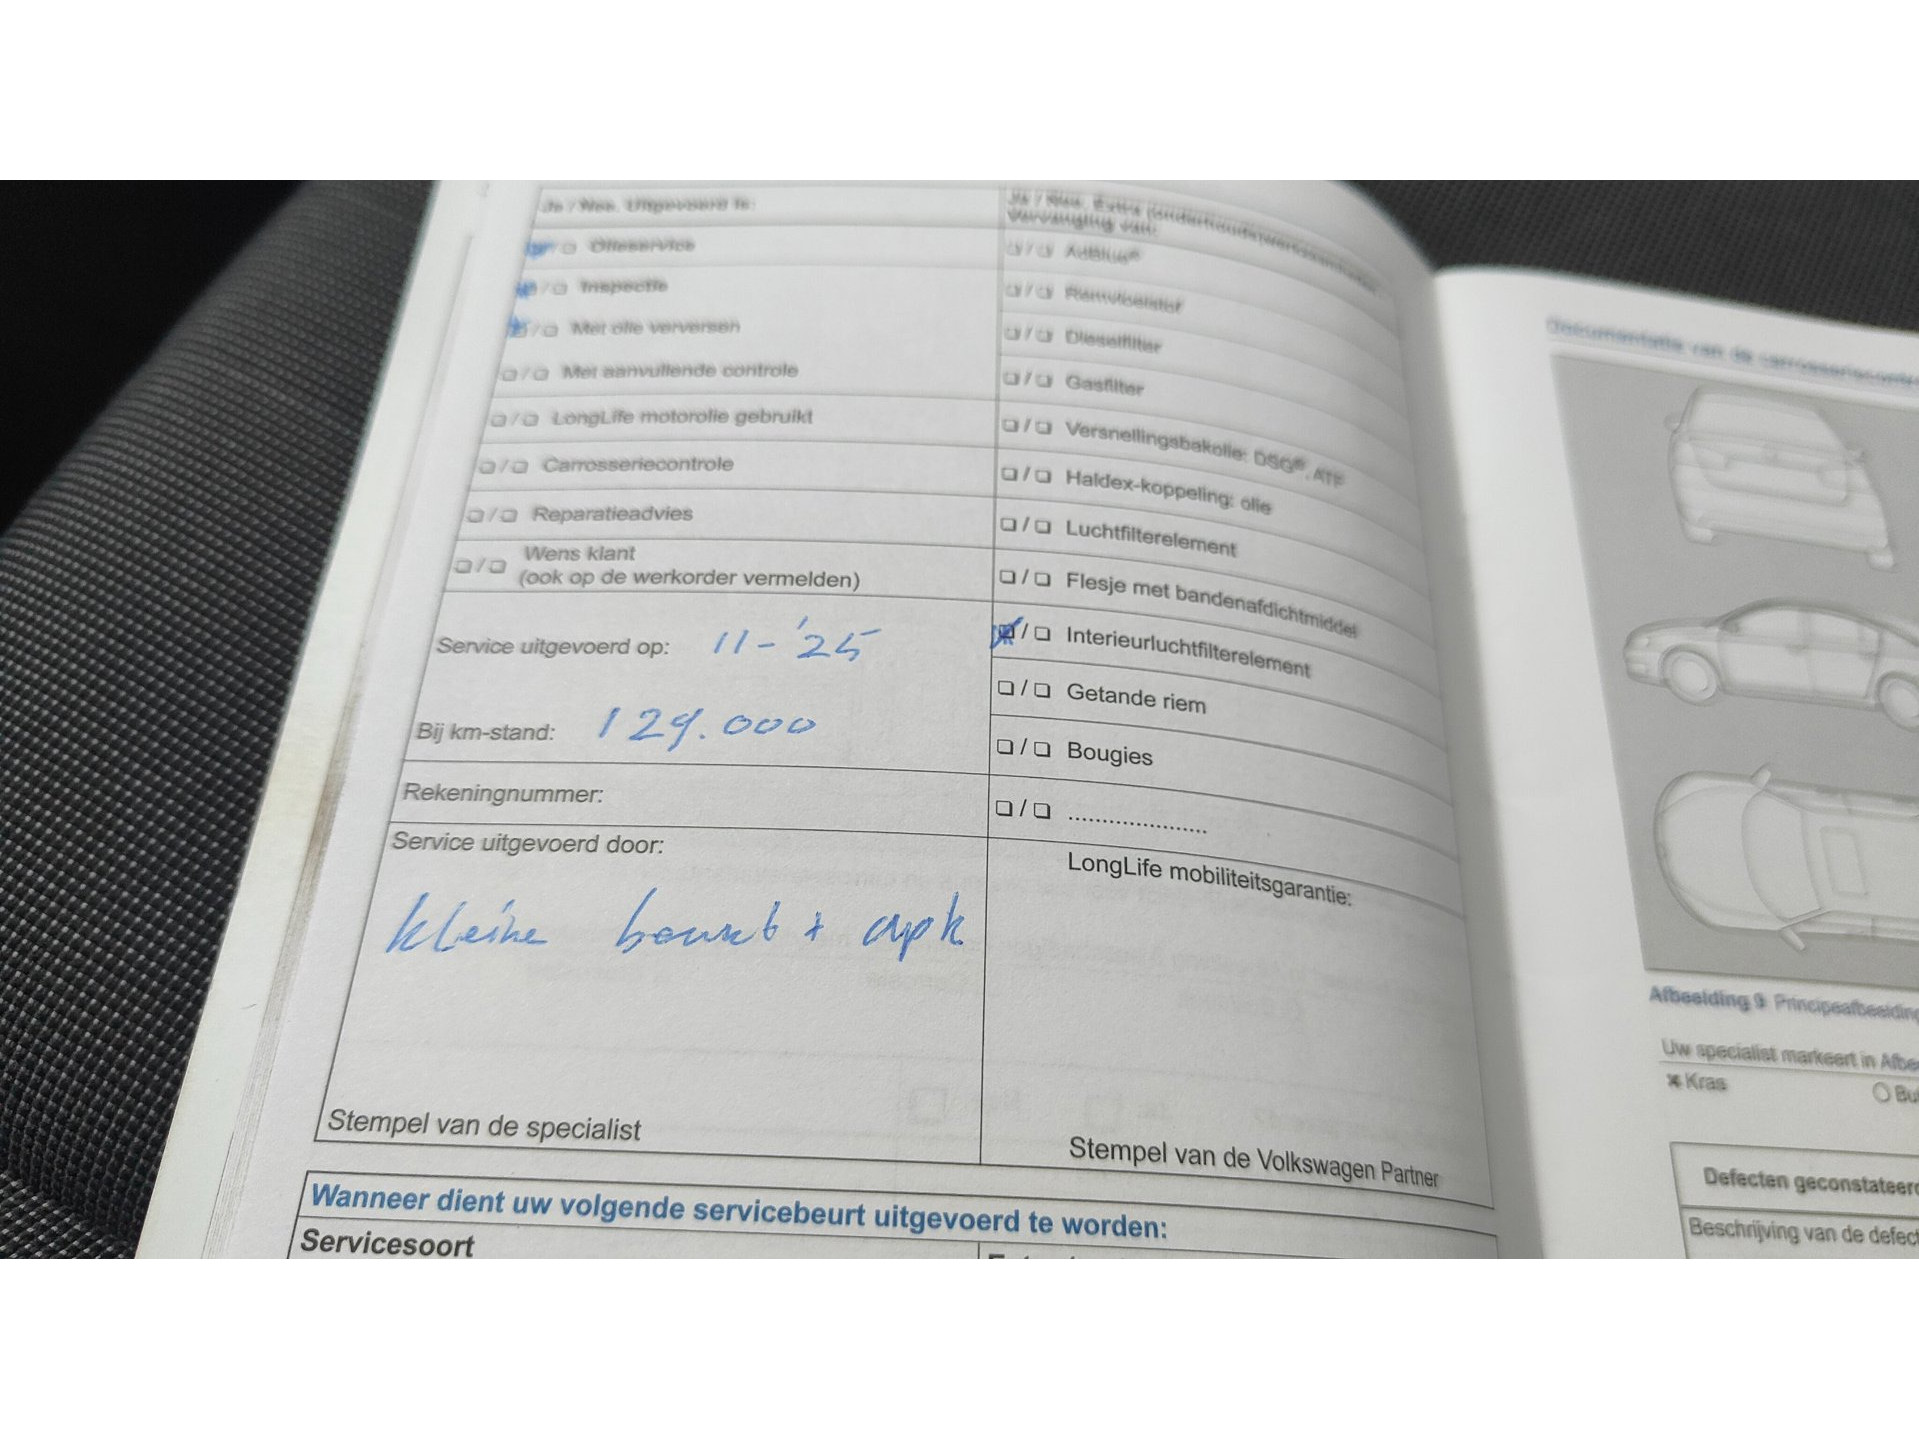 Ja / Nee. Uitgevoerd is:
☒/❏ Olieservice
☒/❏ Inspectie
☒/❏ Met olie verversen
❏/❏ Met aanvullende controle
❏/❏ LongLife motorolie gebruikt
❏/❏ Carrosseriecontrole
❏/❏ Reparatieadvies
❏/❏ Wens klant
(ook op de werkorder vermelden)
Service uitgevoerd op: 11-'25
Bij km-stand: 129.000
Rekeningnummer:
Service uitgevoerd door:
kleine beurt + apk
Stempel van de specialist
Ja / Nee. Extra
vervanging van:
❏/❏ AdBlue®
❏/❏ Remvloeistof
❏/❏ Dieselfilter
❏/❏ Gasfilter
❏/❏ Versnellingsbakolie: DSG®, ATF
❏/❏ Haldex-koppeling: olie
❏/❏ Luchtfilterelement
❏/❏ Flesje met bandenafdichtmiddel
☒/❏ Interieurluchtfilterelement
❏/❏ Getande riem
❏/❏ Bougies
❏/❏ ......................
LongLife mobiliteitsgarantie:
Stempel van de Volkswagen Partner
Wanneer dient uw volgende servicebeurt uitgevoerd te worden:
Servicesoort
Documentatie van de
Afbeelding 9 Principeafbeelding
Uw specialist markeert in
Kras
Defecten geconstateerd
Beschrijving van de defect